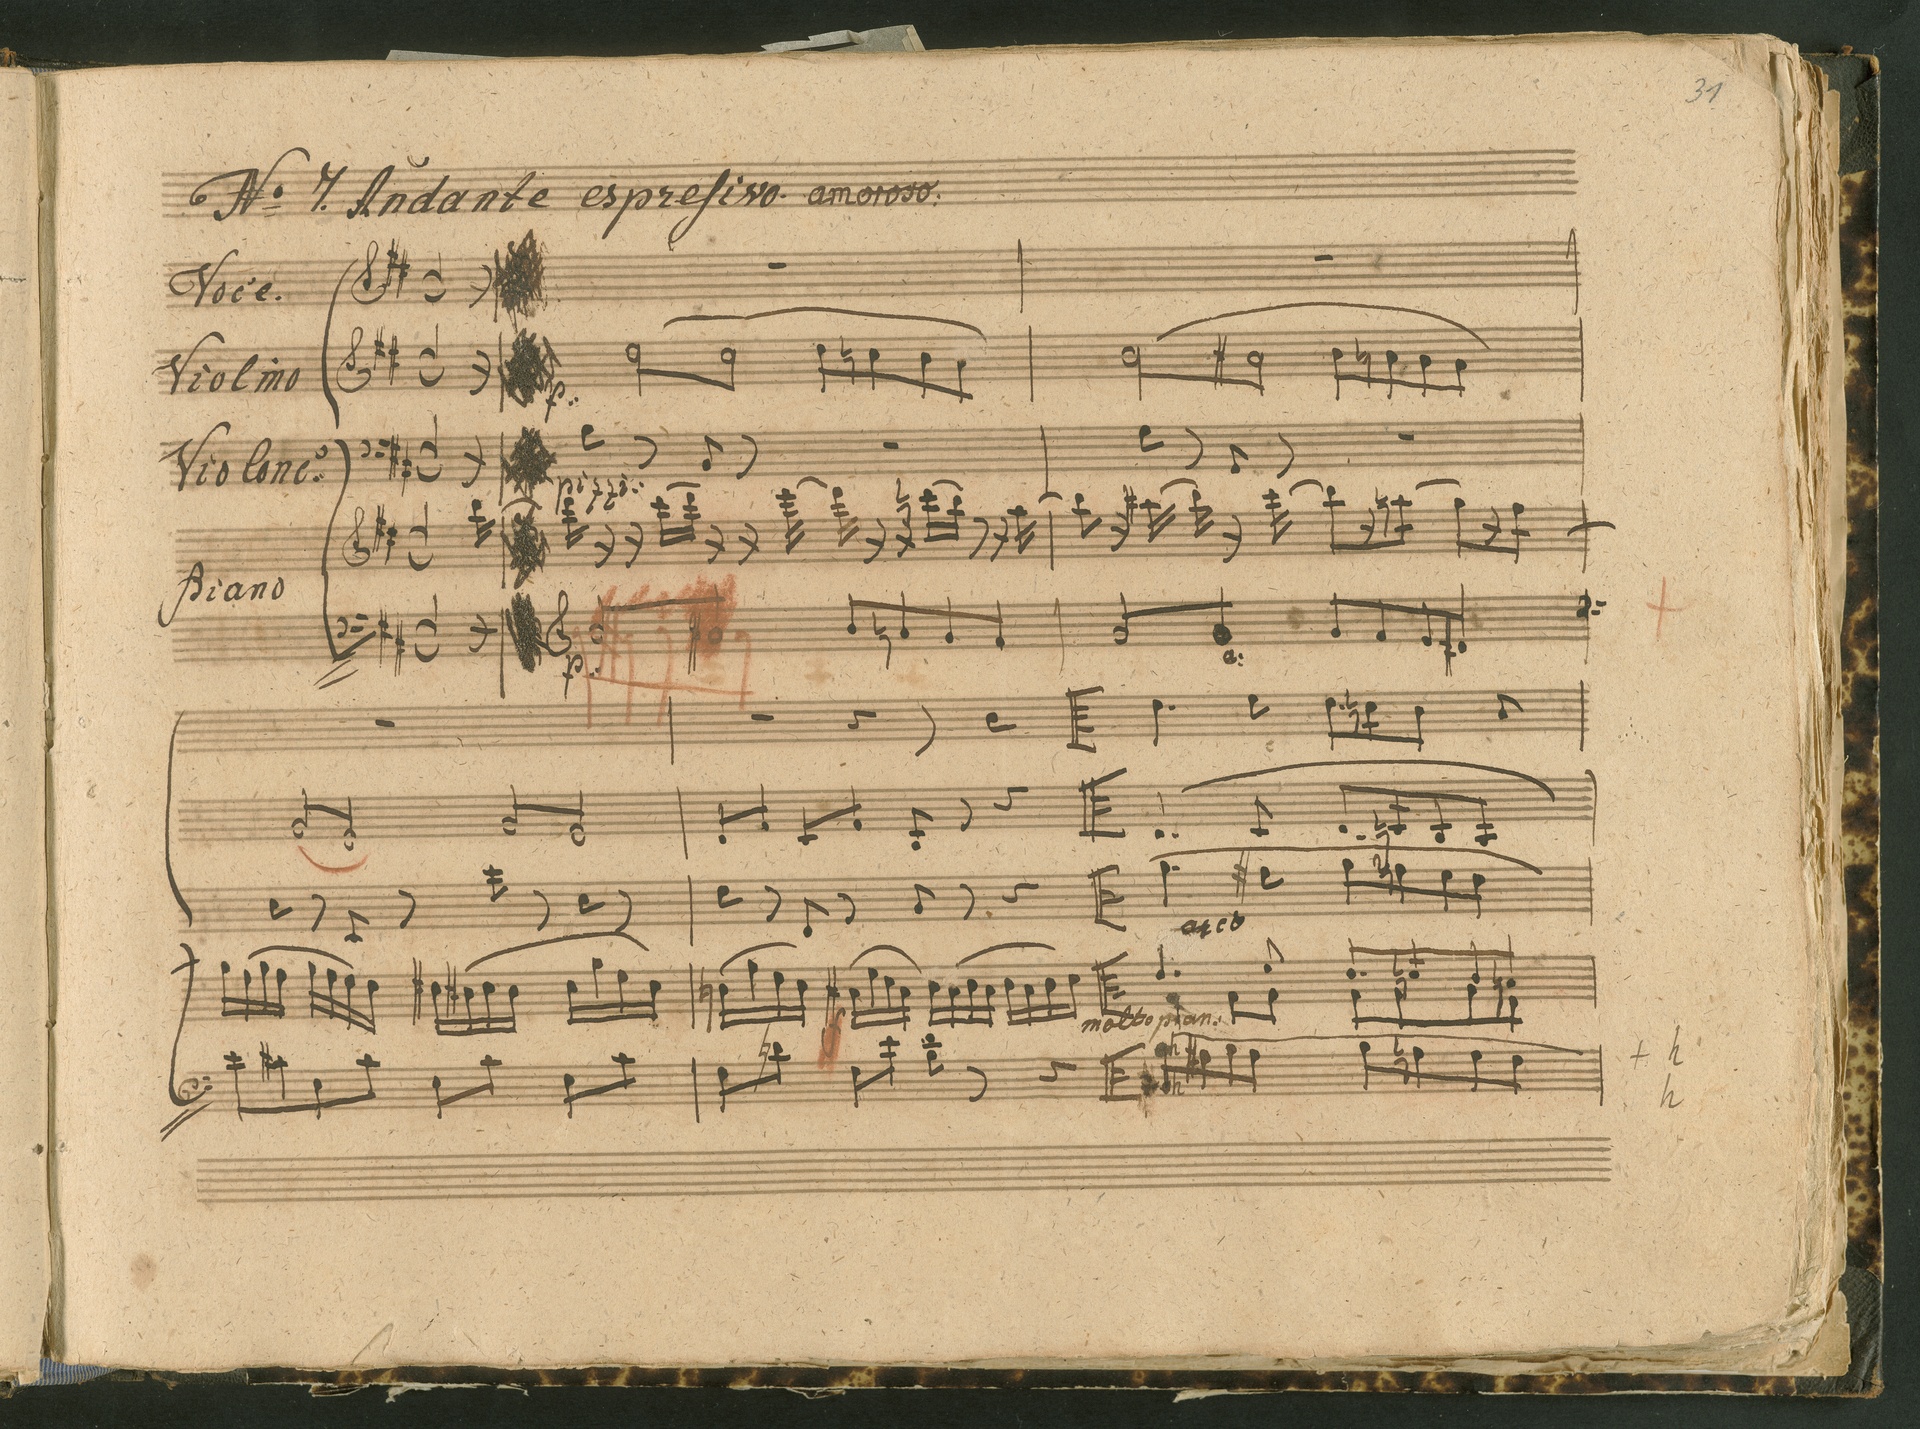 31
No. 7. Andante espresivo. amoroso.
Voce.
Violino
p.
Violonco.
pizzi:
Piano
p.
a:
arco
molto pian:
h
h
h
+ h
h